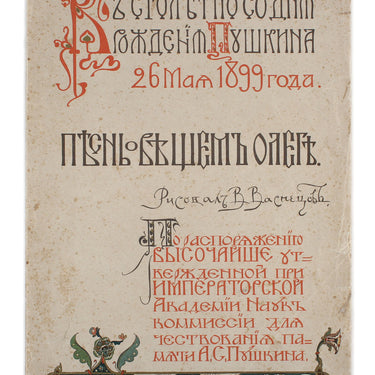 Къ столѣтію со дня
рожденія Пушкина
26 мая 1899 года.
Пѣснь о вѣщемъ Олегѣ.
Рисовалъ В. Васнецовъ.
По распоряженію
высочайше ут=
вержденной при
императорской
Академіи Наукъ
коммиссіи для
чествованія па=
мяти А.С.Пушкина.